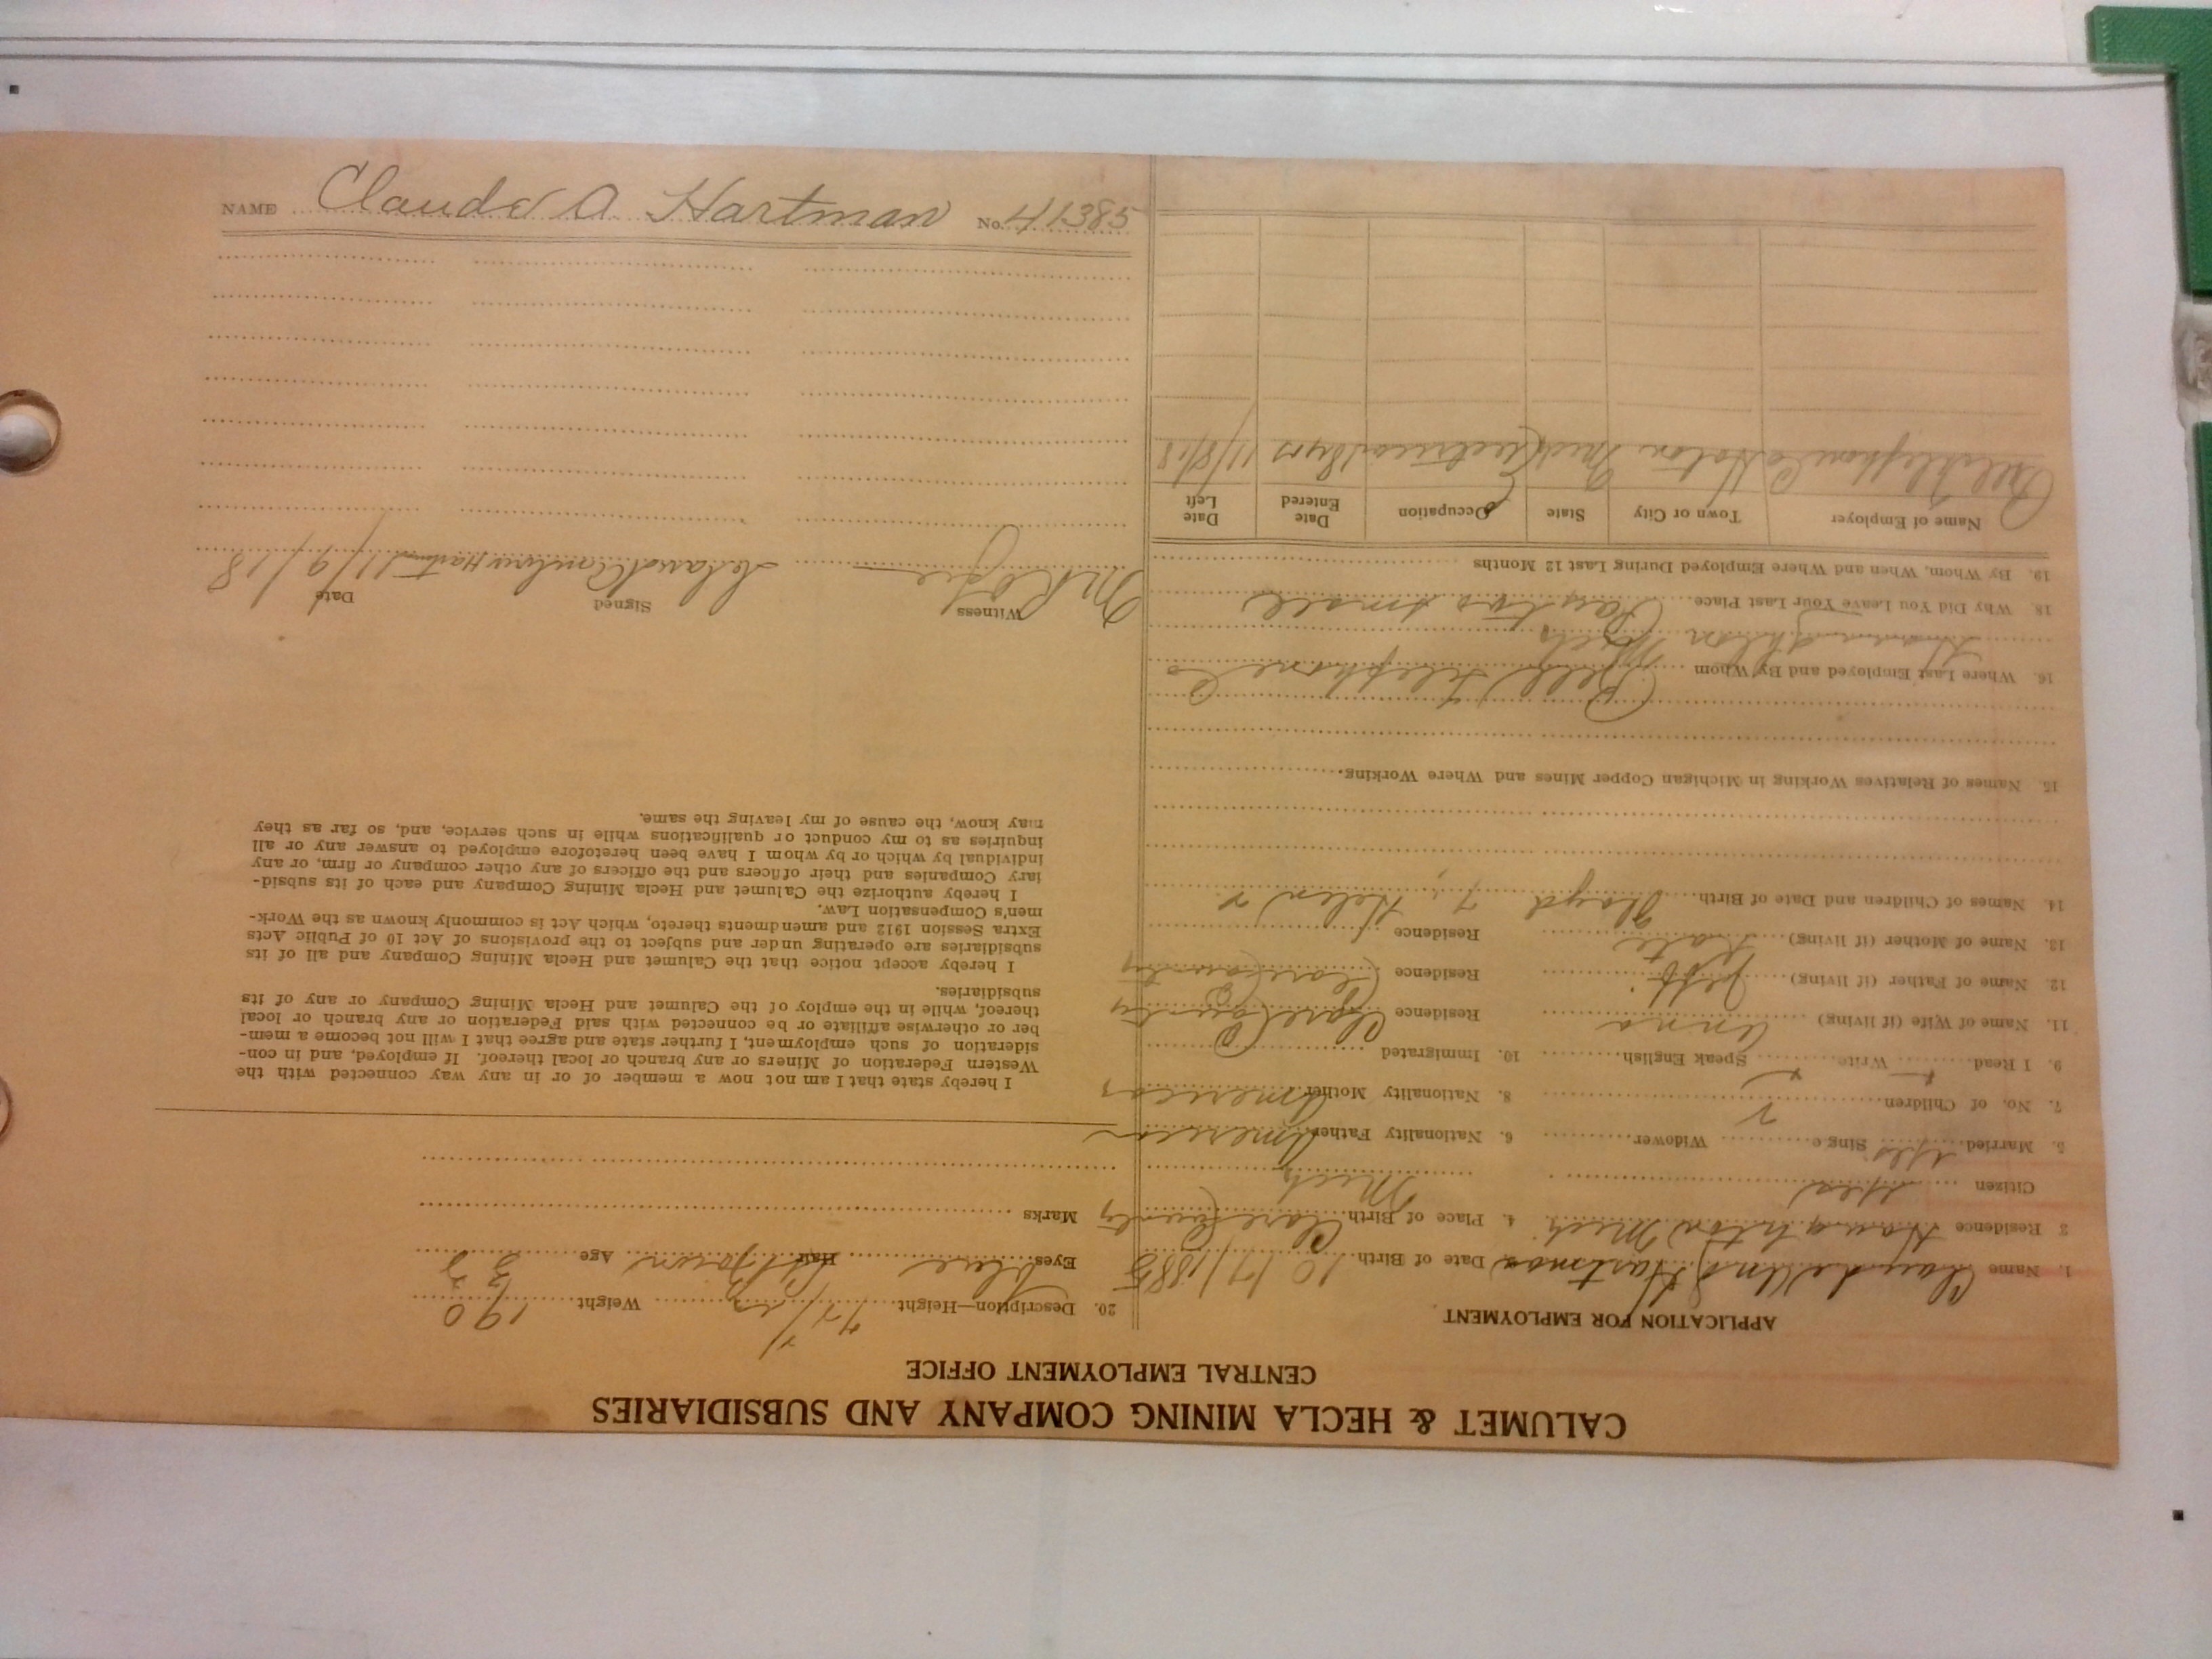 NAME Claude A Hartman No. 41385
CALUMET & HECLA MINING COMPANY AND SUBSIDIARIES
CENTRAL EMPLOYMENT OFFICE
APPLICATION FOR EMPLOYMENT
1. Name Claude Hartman Date of Birth 10/17/1885
3 Residence Houghton Mich 4. Place of Birth Clare County
Citizen Yes Mich
5. Married Yes Single Widower 6. Nationality Father American
7. No. of Children 2 8. Nationality Mother American
9. I Read Write Speak English 10. Immigrated
11. Name of Wife (if living) Anna Residence
12. Name of Father (if living) Jeff Residence Clare County
13. Name of Mother (if living) Kate Residence Clare County
14. Names of Children and Date of Birth Floyd 7, Helen 2
15. Names of Relatives Working in Michigan Copper Mines and Where Working.
16. Where Last Employed and By Whom Bell Telephone Co
Houghton Mich
18. Why Did You Leave Your Last Place Pay too small
19. By Whom, When and Where Employed During Last 12 Months
Name of Employer Town or City State Occupation Date Entered Date Left
Bell Telephone Co Hoton Mich Electrician 8 yrs 11/8/18
20. Description—Height Weight 190
Eyes Blue Hair Brown Age 33
Marks
I hereby state that I am not now a member of or in any way connected with the
Western Federation of Miners or any branch or local thereof. If employed, and in con-
sideration of such employment, I further state and agree that I will not become a mem-
ber or otherwise affiliate or be connected with said Federation or any branch or local
thereof, while in the employ of the Calumet and Hecla Mining Company or any of its
subsidiaries.
I hereby accept notice that the Calumet and Hecla Mining Company and all of its
subsidiaries are operating under and subject to the provisions of Act 10 of Public Acts
Extra Session 1912 and amendments thereto, which Act is commonly known as the Work-
men's Compensation Law.
I hereby authorize the Calumet and Hecla Mining Company and each of its subsid-
iary Companies and their officers and the officers of any other company or firm, or any
individual by which or by whom I have been heretofore employed to answer any or all
inquiries as to my conduct or qualifications while in such service, and, so far as they
may know, the cause of my leaving the same.
Witness Signed Date
11/9/18